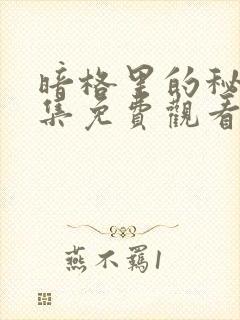 暗格里的秘
集免費觀看
燕不羁1